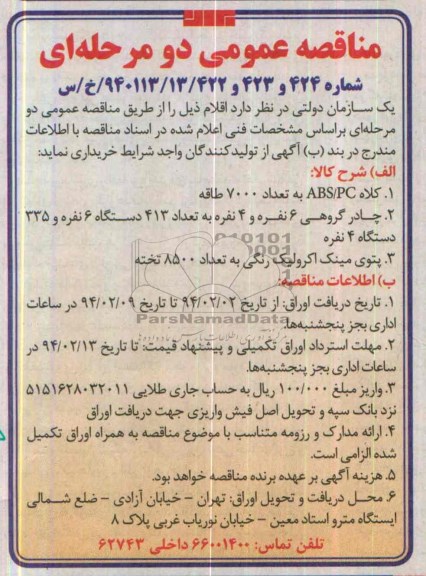 مناقصه عمومی دو مرحله‌ای
شماره ۴۲۴ و ۴۲۳ و ۹۴۰۱۱۳/۱۳/۴۲۲/خ/س
یک سازمان دولتی در نظر دارد اقلام ذیل را از طریق مناقصه عمومی دو
مرحله‌ای براساس مشخصات فنی اعلام شده در اسناد مناقصه با اطلاعات
مندرج در بند (ب) آگهی از تولیدکنندگان واجد شرایط خریداری نماید:
الف) شرح کالا:
۱. کلاه ABS/PC به تعداد ۷۰۰۰ طاقه
۲. چادر گروهی ۶ نفره و ۴ نفره به تعداد ۴۱۳ دستگاه ۶ نفره و ۳۳۵
دستگاه ۴ نفره
۳. پتوی مینک اکرولیک رنگی به تعداد ۸۵۰۰ تخته
ب) اطلاعات مناقصه:
۱. تاریخ دریافت اوراق: از تاریخ ۹۴/۰۲/۰۲ تا تاریخ ۹۴/۰۲/۰۹ در ساعات
اداری بجز پنجشنبه‌ها.
۲. مهلت استرداد اوراق تکمیلی و پیشنهاد قیمت: تا تاریخ ۹۴/۰۲/۱۳ در
ساعات اداری بجز پنجشنبه‌ها.
۳. واریز مبلغ ۱۰۰/۰۰۰ ریال به حساب جاری طلایی ۵۱۵۱۶۲۸۰۳۲۰۱۱
نزد بانک سپه و تحویل اصل فیش واریزی جهت دریافت اوراق
۴. ارائه مدارک و رزومه متناسب با موضوع مناقصه به همراه اوراق تکمیل
شده الزامی است.
۵. هزینه آگهی بر عهده برنده مناقصه خواهد بود.
۶. محل دریافت و تحویل اوراق: تهران – خیابان آزادی – ضلع شمالی
ایستگاه مترو استاد معین – خیابان نوریاب غربی پلاک ۸
تلفن تماس: ۶۶۰۰۱۴۰۰ داخلی ۶۲۷۴۳
ParsNamadData